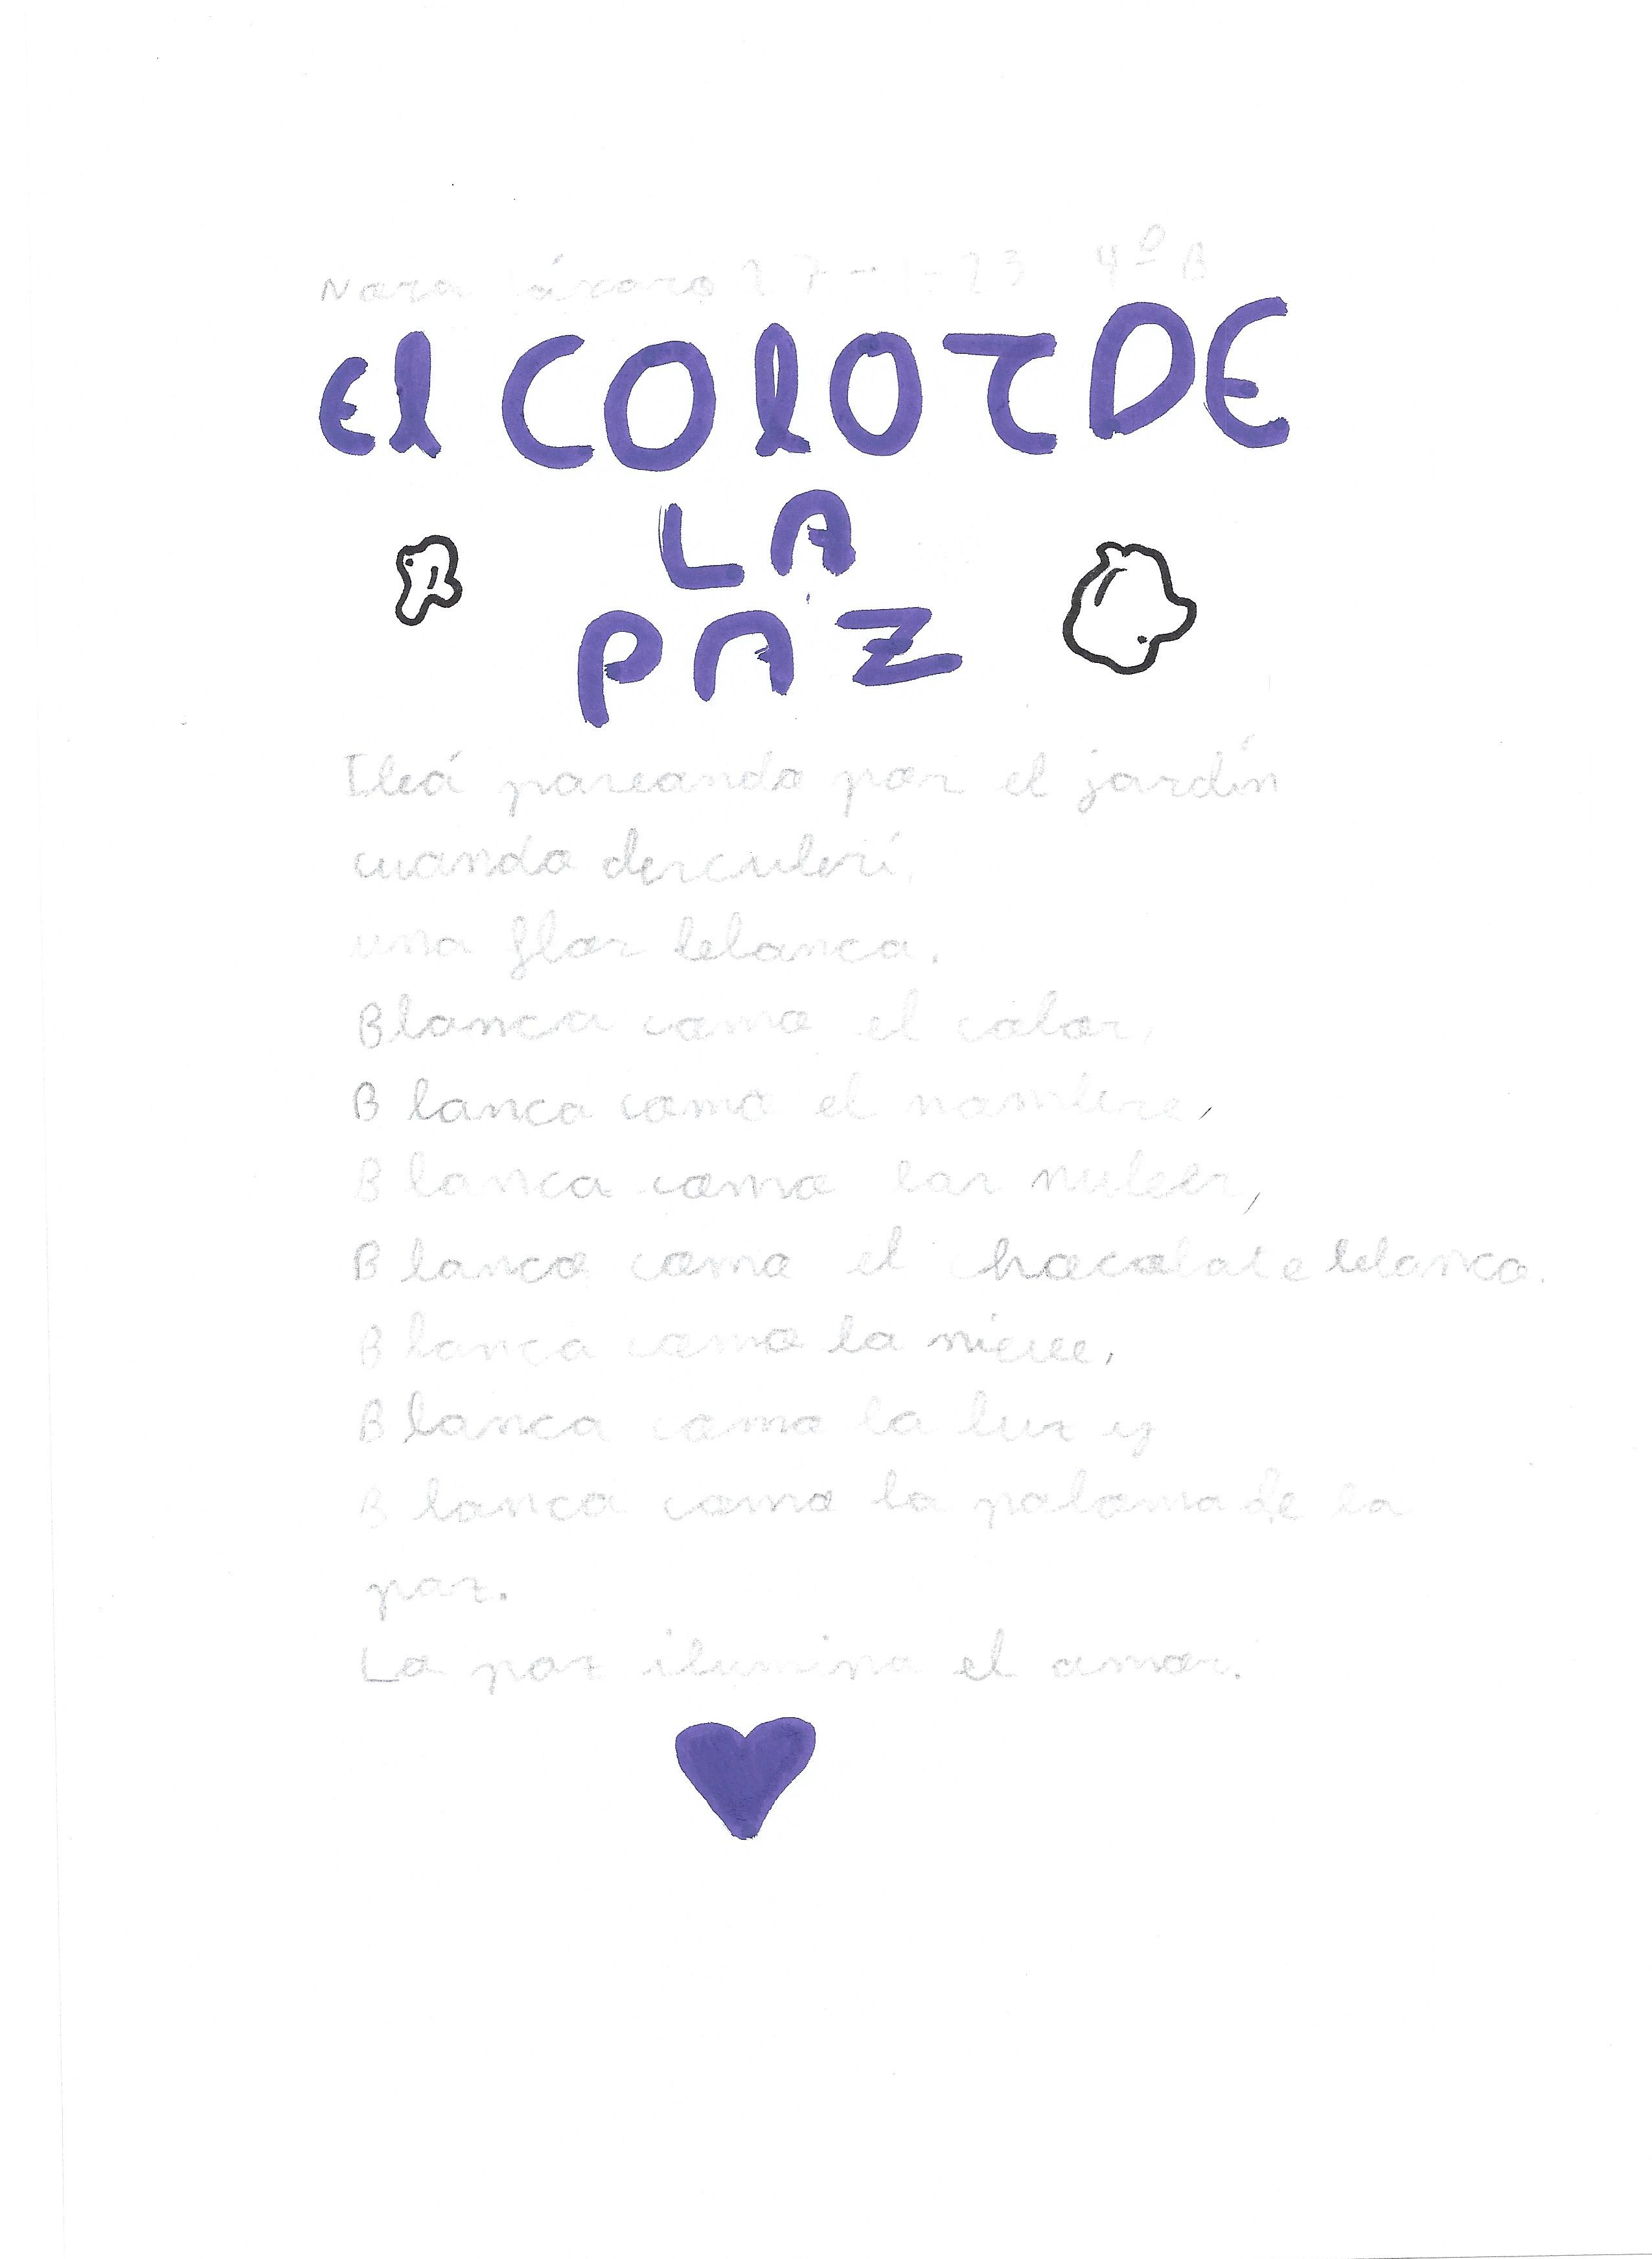 Nora 27-1-23 4º B
El COlOr DE
LA
PAZ
Ibá paseando por el jardín
cuando descubrí,
una flor blanca.
Blanca como el color,
Blanca como el nombre,
Blanca como las nubes,
Blanca como el chocolate blanco.
Blanca como la nieve,
Blanca como la luz y
Blanca como la paloma de la
paz.
La paz ilumina el amor.